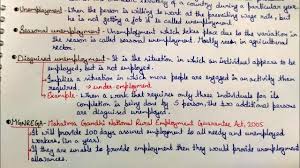 of a country during a particular year
Unemployment - When the person is willing to work at the prevailing wage rate, but
he is not getting a job it is called unemployment.
Seasonal unemployment - Unemployment which takes place due to the variation in
the season is called seasonal unemployment. Mostly seen in agricultural
sector.
Disguised unemployment - It is the situation, in which an individual appears to be
employed, but is not employed.
Implies a situation in which more people are engaged in an activity than
required. → under employment
Example - When a work that requires only three individuals for its
completion is being done by 5 person, the two additional persons
are disguised unemployed.
MGNREGA - Mahatma Gandhi National Rural Employment Guarantee Act, 2005
It will provide 100 days assured employment to all needy and unemployed
workers (in a year)
If they are unable to provide employment then they would provide unemployment
allowances.